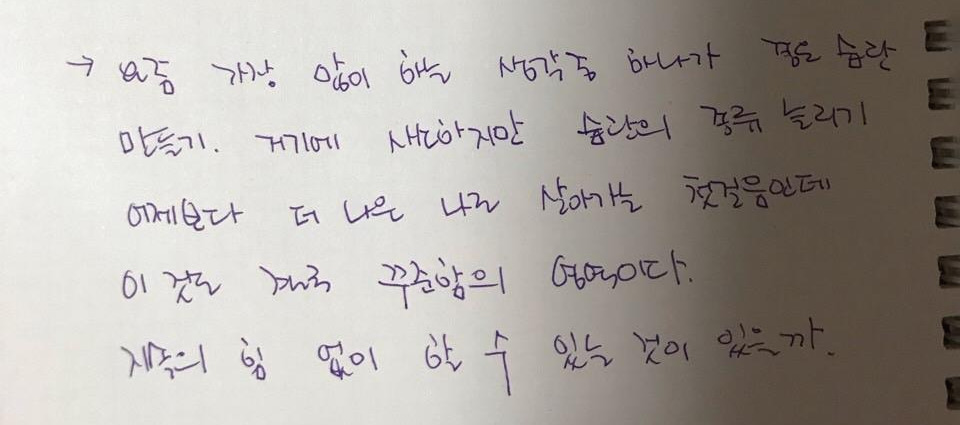 → 요즘 가장 많이 하는 생각중 하나가 좋은 습관
만들기. 거기에 새다하지만 습관의 종류 늘리기
어제보다 더 나은 나로 살아가는 첫걸음인데
이 것도 결국 꾸준함의 영역이다.
지속의 힘 없이 할 수 있는 것이 있을까.